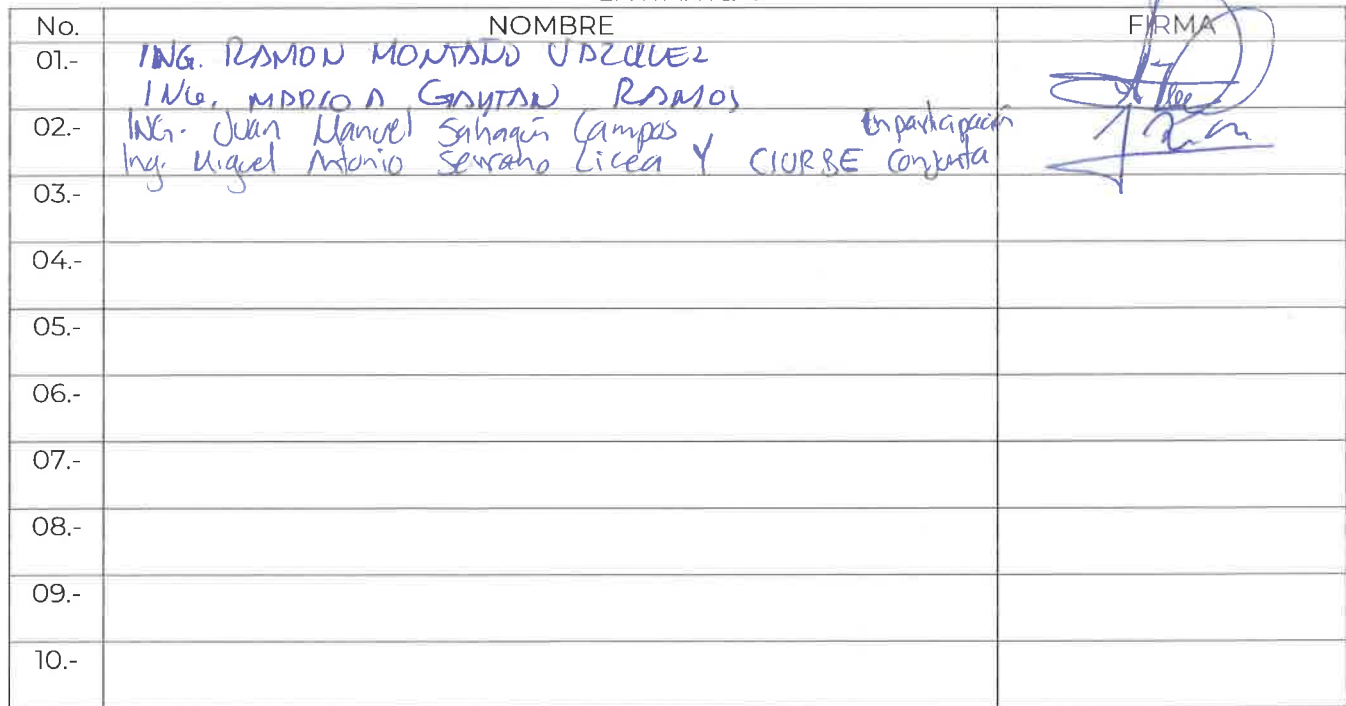 No. NOMBRE FIRMA
01.- ING. RAMON MONTAÑO VAZQUEZ
ING. MARIO A GAYTAN RAMOS
02.- ING. Juan Manuel Sahagún Campos En participación
Ing. Miguel Antonio Serrano Licea Y CIURBE Conjunta
03.-
04.-
05.-
06.-
07.-
08.-
09.-
10.-